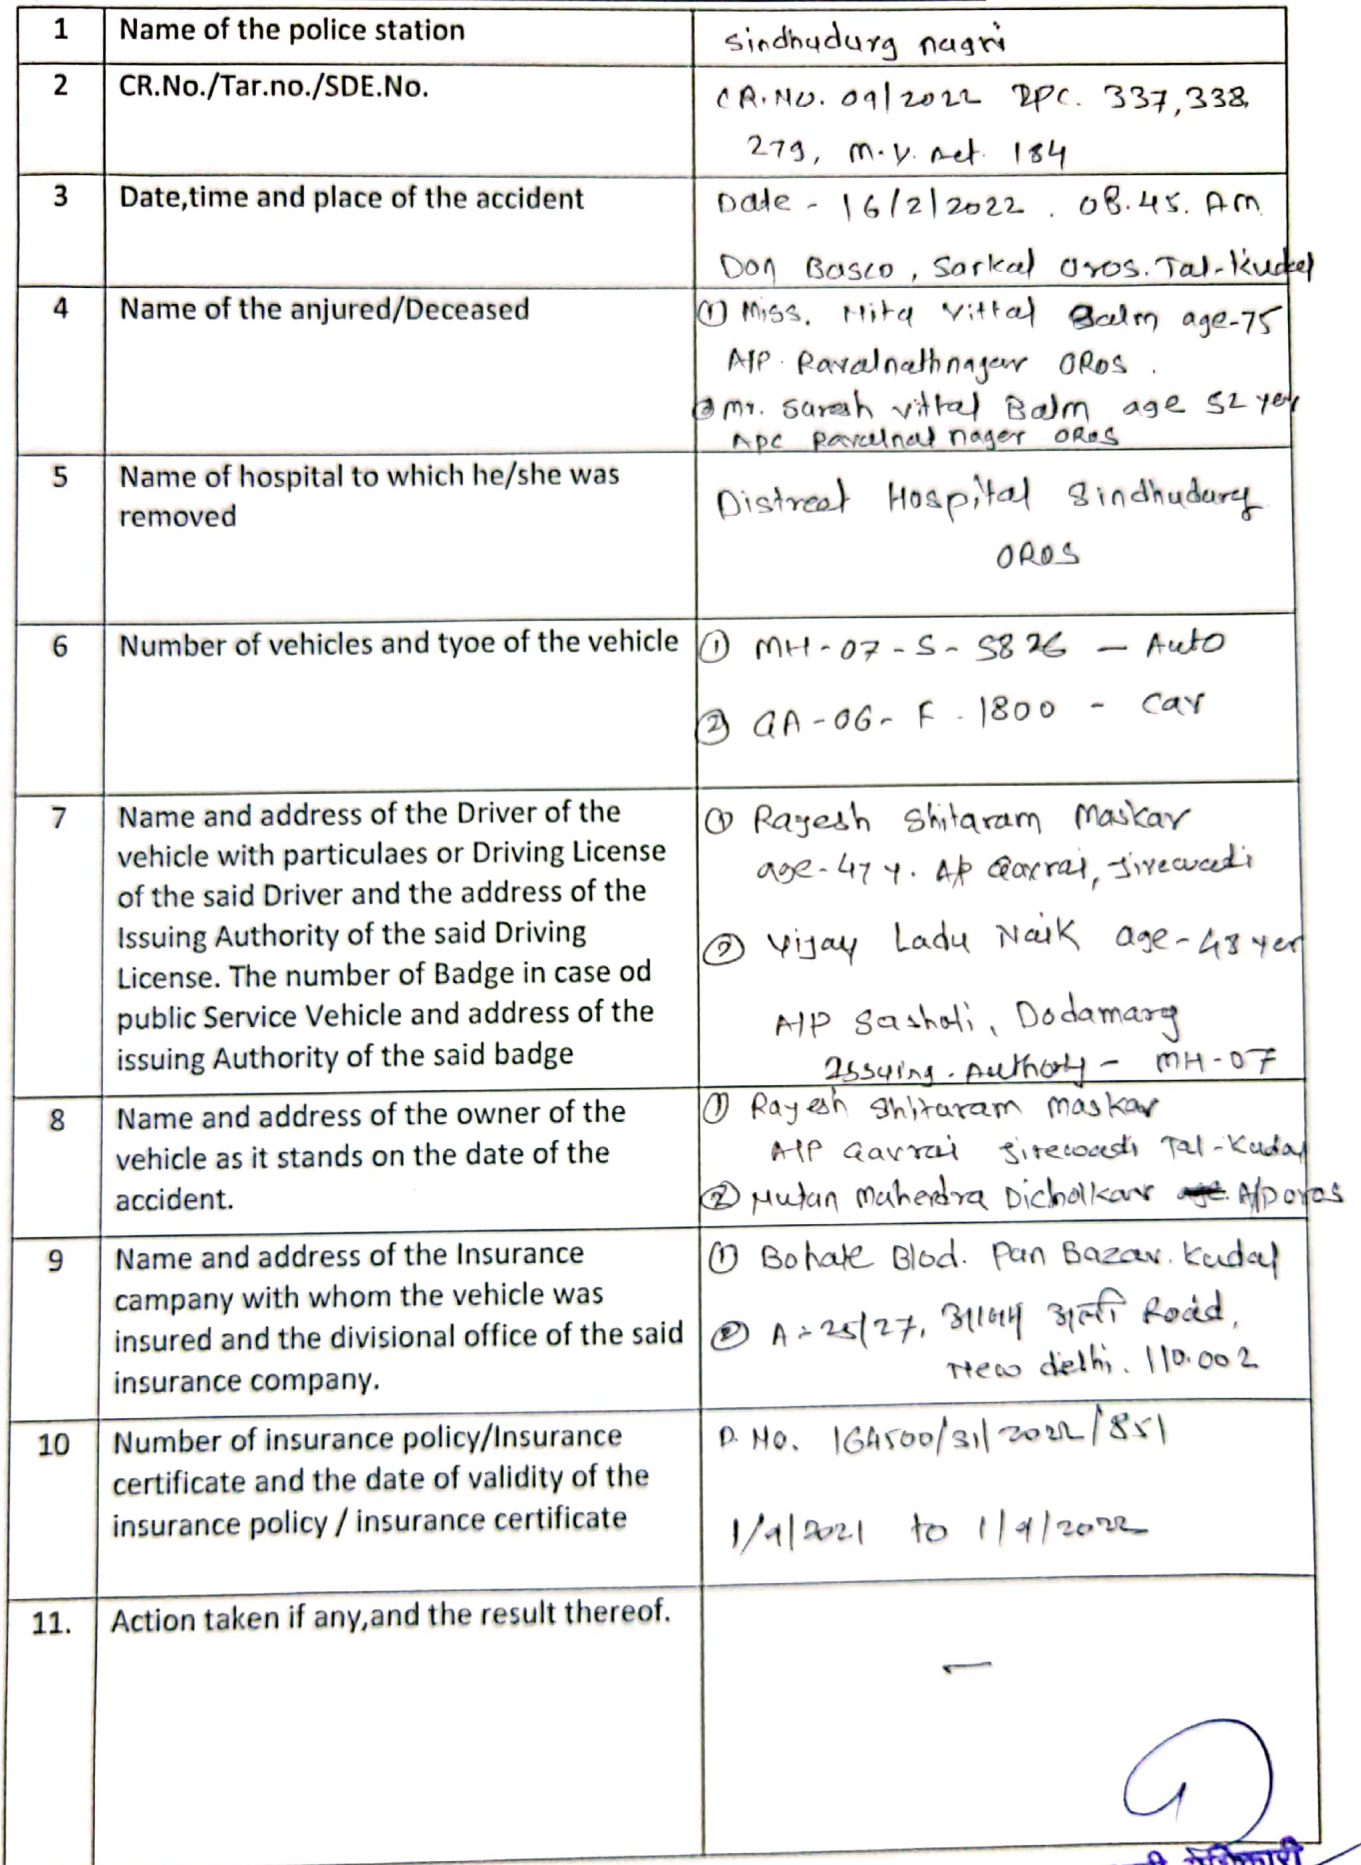 1 Name of the police station sindhudurg nagri
2 CR.No./Tar.no./SDE.No. CR.NO. 09/2022 IPC. 337,338,
279, M.V. Act. 184
3 Date,time and place of the accident Date - 16/2/2022 . 08.45. AM
Don Basco, Sarkal Oros. Tal-Kudal
4 Name of the anjured/Deceased ① Miss. Nita Vittal Balm age-75
A/P. Ravalnathnagar OROS.
② Mr. Suresh vittal Balm age 52 yer
Apc Ravalnat nager OROS
5 Name of hospital to which he/she was
removed
Distreet Hospital Sindhudurg
OROS
6 Number of vehicles and tyoe of the vehicle ① MH-07-S-5826 – Auto
② GA-06-F-1800 - Car
7 Name and address of the Driver of the
vehicle with particulaes or Driving License
of the said Driver and the address of the
Issuing Authority of the said Driving
License. The number of Badge in case od
public Service Vehicle and address of the
issuing Authority of the said badge
① Rajesh Shitaram Maskar
age-47 y. A/P Gavrai,
② Vijay Ladu Naik age-48 yer
A/P Sasholi, Dodamarg
Issying. Authoty - MH-07
8 Name and address of the owner of the
vehicle as it stands on the date of the
accident.
① Rajesh Shitaram Maskar
A/P Gavrai Tal-Kudal
② Mahendra Dicholkar A/P Oros
9 Name and address of the Insurance
campany with whom the vehicle was
insured and the divisional office of the said
insurance company.
① Bohate Blod. Pan Bazar. Kudal
② A-25/27, Road,
New delhi. 110.002
10 Number of insurance policy/Insurance
certificate and the date of validity of the
insurance policy / insurance certificate
P. No. 164500/31/2022/851
1/9/2021 to 1/9/2022
11. Action taken if any,and the result thereof. –